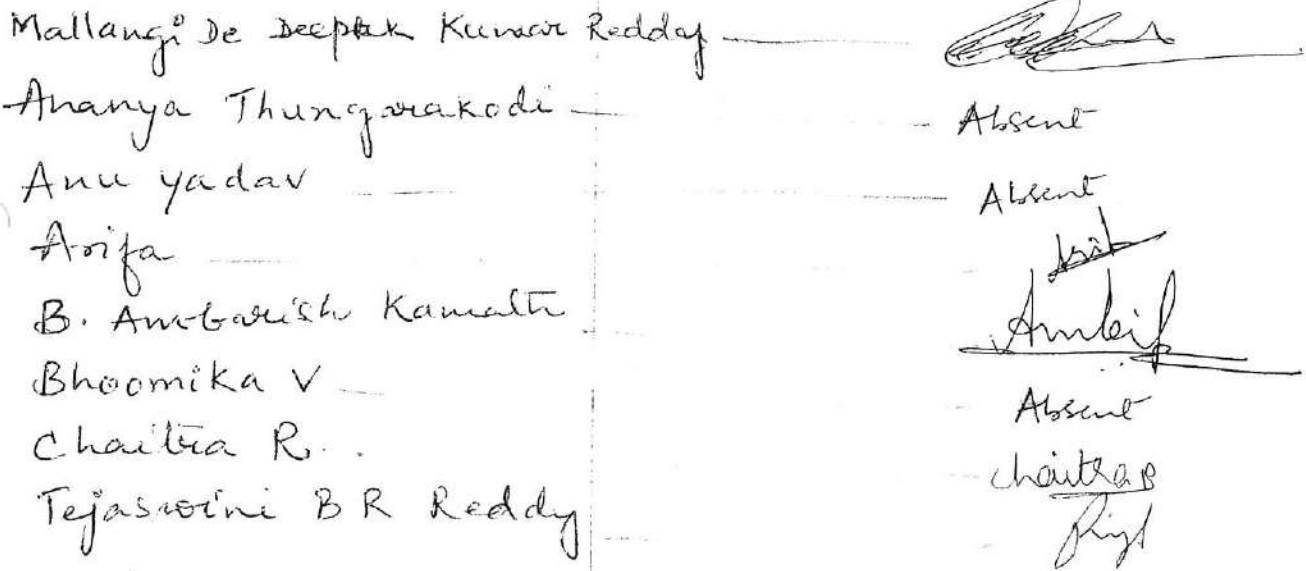 Mallangi De Deepak Kumar Reddy
Ananya Thungarakodi Absent
Anu yadav Absent
Arifa
B. Ambarish Kamath
Bhoomika V Absent
Chaitra R. Chaitra R
Tejaswini B R Reddy